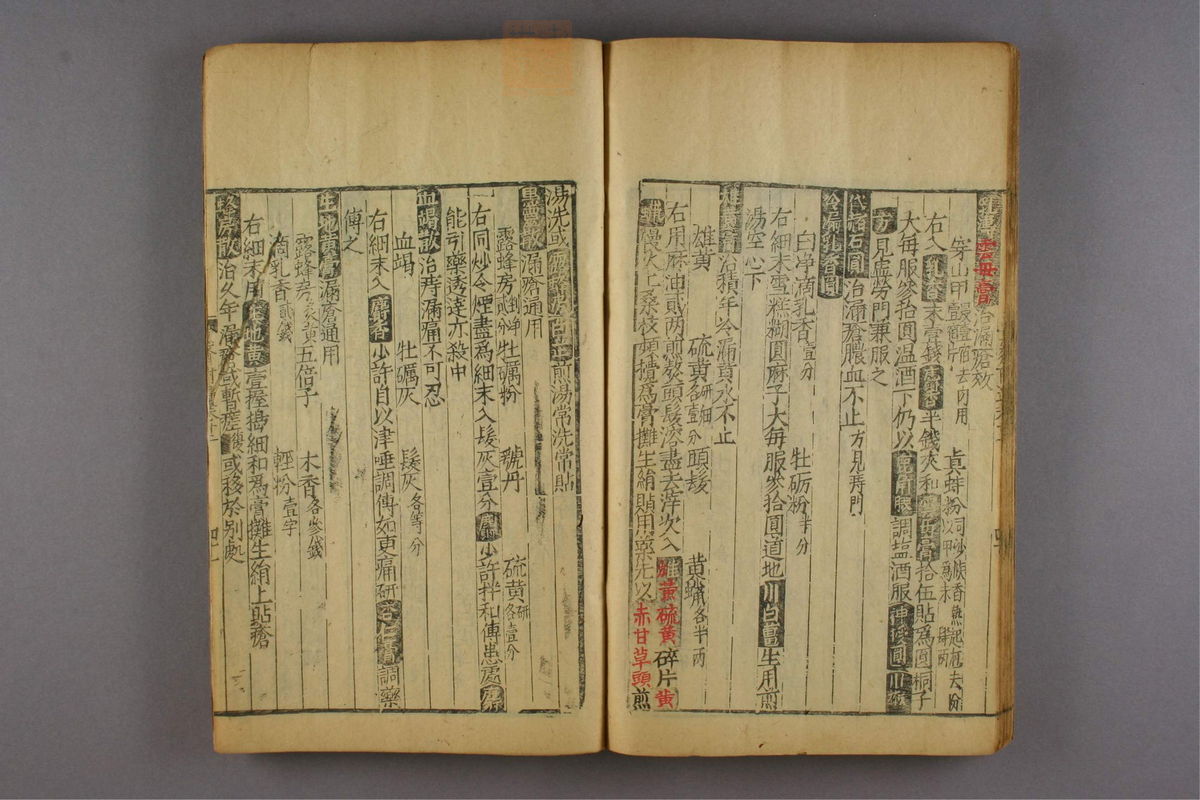 雲母膏治漏瘡效
穿山甲 眞蚌粉同炒候香熟起
右入乳香末壹錢麝香半錢夾和雲母膏拾伍貼爲圓桐子
大每服叄拾圓温酒下仍以 調塩酒服神授圓川椒
方見盅勞門兼服之
代赭石圓治漏瘡膿血不止方見痔門
冷漏乳香圓
白淨滴乳香壹分 牡砺粉半分
右細末雪糕糊圓麻子大每服叄拾圓道地川白薑生用煎
湯空心下
雄黃膏治積年冷漏黃水不止
雄黃 硫黃研細各壹分 頭髮 黃蠟各半兩
右用麻油貳两煎熬頭髮淡盡去滓次入雄黃硫黃碎片黃
蠟慢火上桑枝頻攪爲膏攤生絹貼用藥先以赤甘草頭煎
湯洗或露蜂房白芷煎湯常洗常貼
黑靈散漏瘡通用
露蜂房貳分 牡礪粉 虢丹 硫黃研各壹分
右同炒令煙盡爲細末入髮灰壹分麝香少許拌和傅患處
能引藥透達亦殺中
血竭散治痔漏痛不可忍
血竭 牡礪灰 髮灰各等分
右細末入麝香少許自以津唾調傅如更痛研杏仁膏調藥
傅之
生地黃膏漏瘡通用
露蜂房 五倍子 木香各叄錢
滴乳香貳錢 輕粉壹字
右細末用生地黃壹握擣細和爲膏攤生絹上貼瘡
散治久年漏瘡或暫瘥復或移於别處